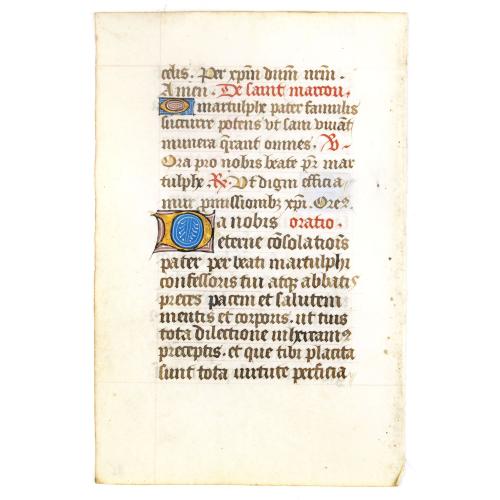 celis. Per xpm dnm nrm.
Amen. De saint marcou.
O martulphe pater famulis
succurre potens vt sani viuat
munera qrant omnes. V
Ora pro nobis beate pr mar
tulphe. R. Vt digni efficia
mur pmissionibz xpi. Ore2.
Da nobis oratio.
eterne cosolatiois
pater per beati martulphi
confessoris tui atq abbatis
preces pacem et salutem
mentis et corporis. ut tuis
tota dilectione inhereamꝰ
preceptis. et que tibi placita
sunt tota virtute perficia